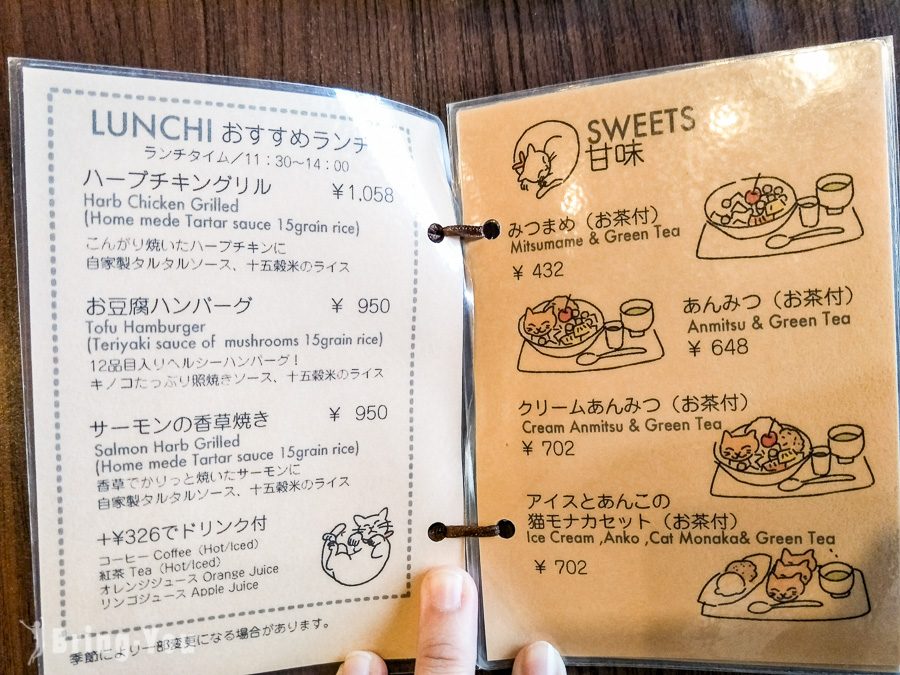 LUNCHI おすすめランチ
ランチタイム／11：30～14：00
ハーブチキングリル ￥1,058
Harb Chicken Grilled
(Home mede Tartar sauce 15grain rice)
こんがり焼いたハーブチキンに
自家製タルタルソース、十五穀米のライス
お豆腐ハンバーグ ￥ 950
Tofu Hamburger
(Teriyaki sauce of mushrooms 15grain rice)
12品目入りヘルシーハンバーグ！
キノコたっぷり照焼きソース、十五穀米のライス
サーモンの香草焼き ￥ 950
Salmon Harb Grilled
(Home mede Tartar sauce 15grain rice)
香草でかりっと焼いたサーモンに
自家製タルタルソース、十五穀米のライス
+¥326でドリンク付
コーヒー Coffee（Hot/Iced）
紅茶 Tea（Hot/Iced）
オレンジジュース Orange Juice
リンゴジュース Apple Juice
季節により一部変更になる場合があります。
SWEETS
甘味
みつまめ（お茶付）
Mitsumame & Green Tea
￥ 432
あんみつ（お茶付）
Anmitsu & Green Tea
￥ 648
クリームあんみつ（お茶付）
Cream Anmitsu & Green Tea
￥ 702
アイスとあんこの
猫モナカセット（お茶付）
Ice Cream ,Anko ,Cat Monaka& Green Tea
￥ 702